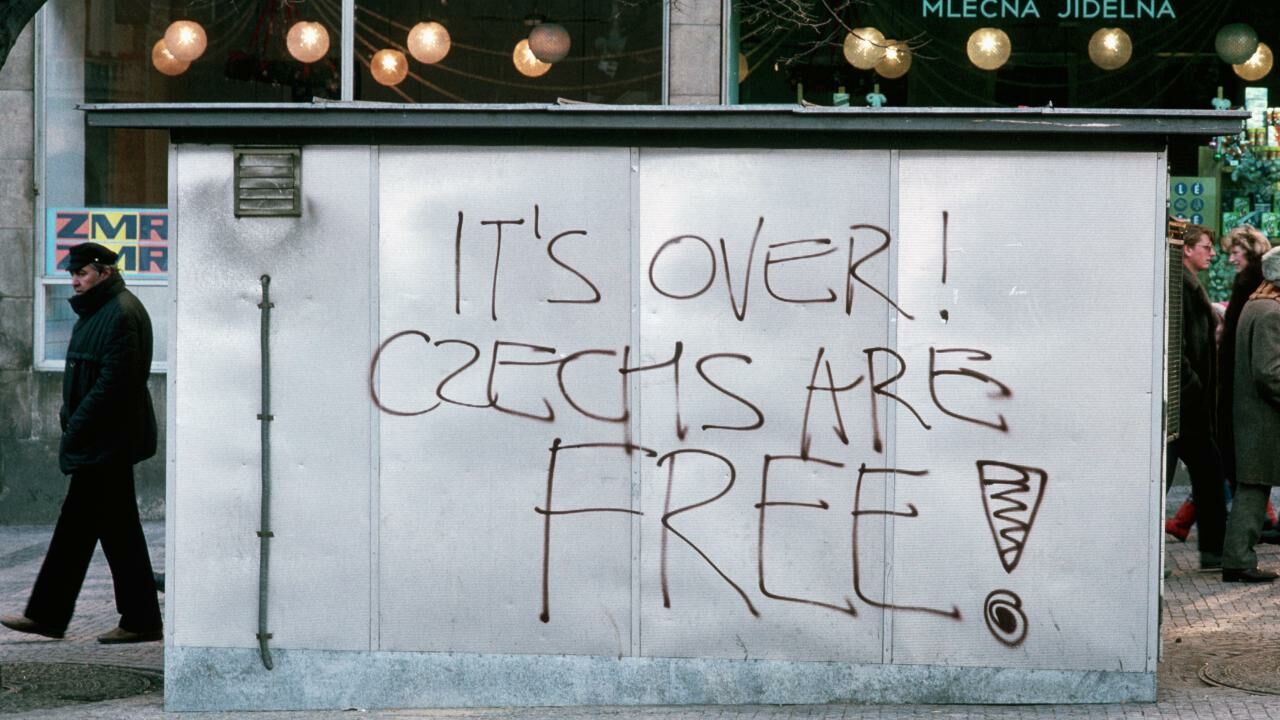 MLÉČNÁ JÍDELNA
ZMR
ZMR
IT'S OVER!
CZECHS ARE
FREE!